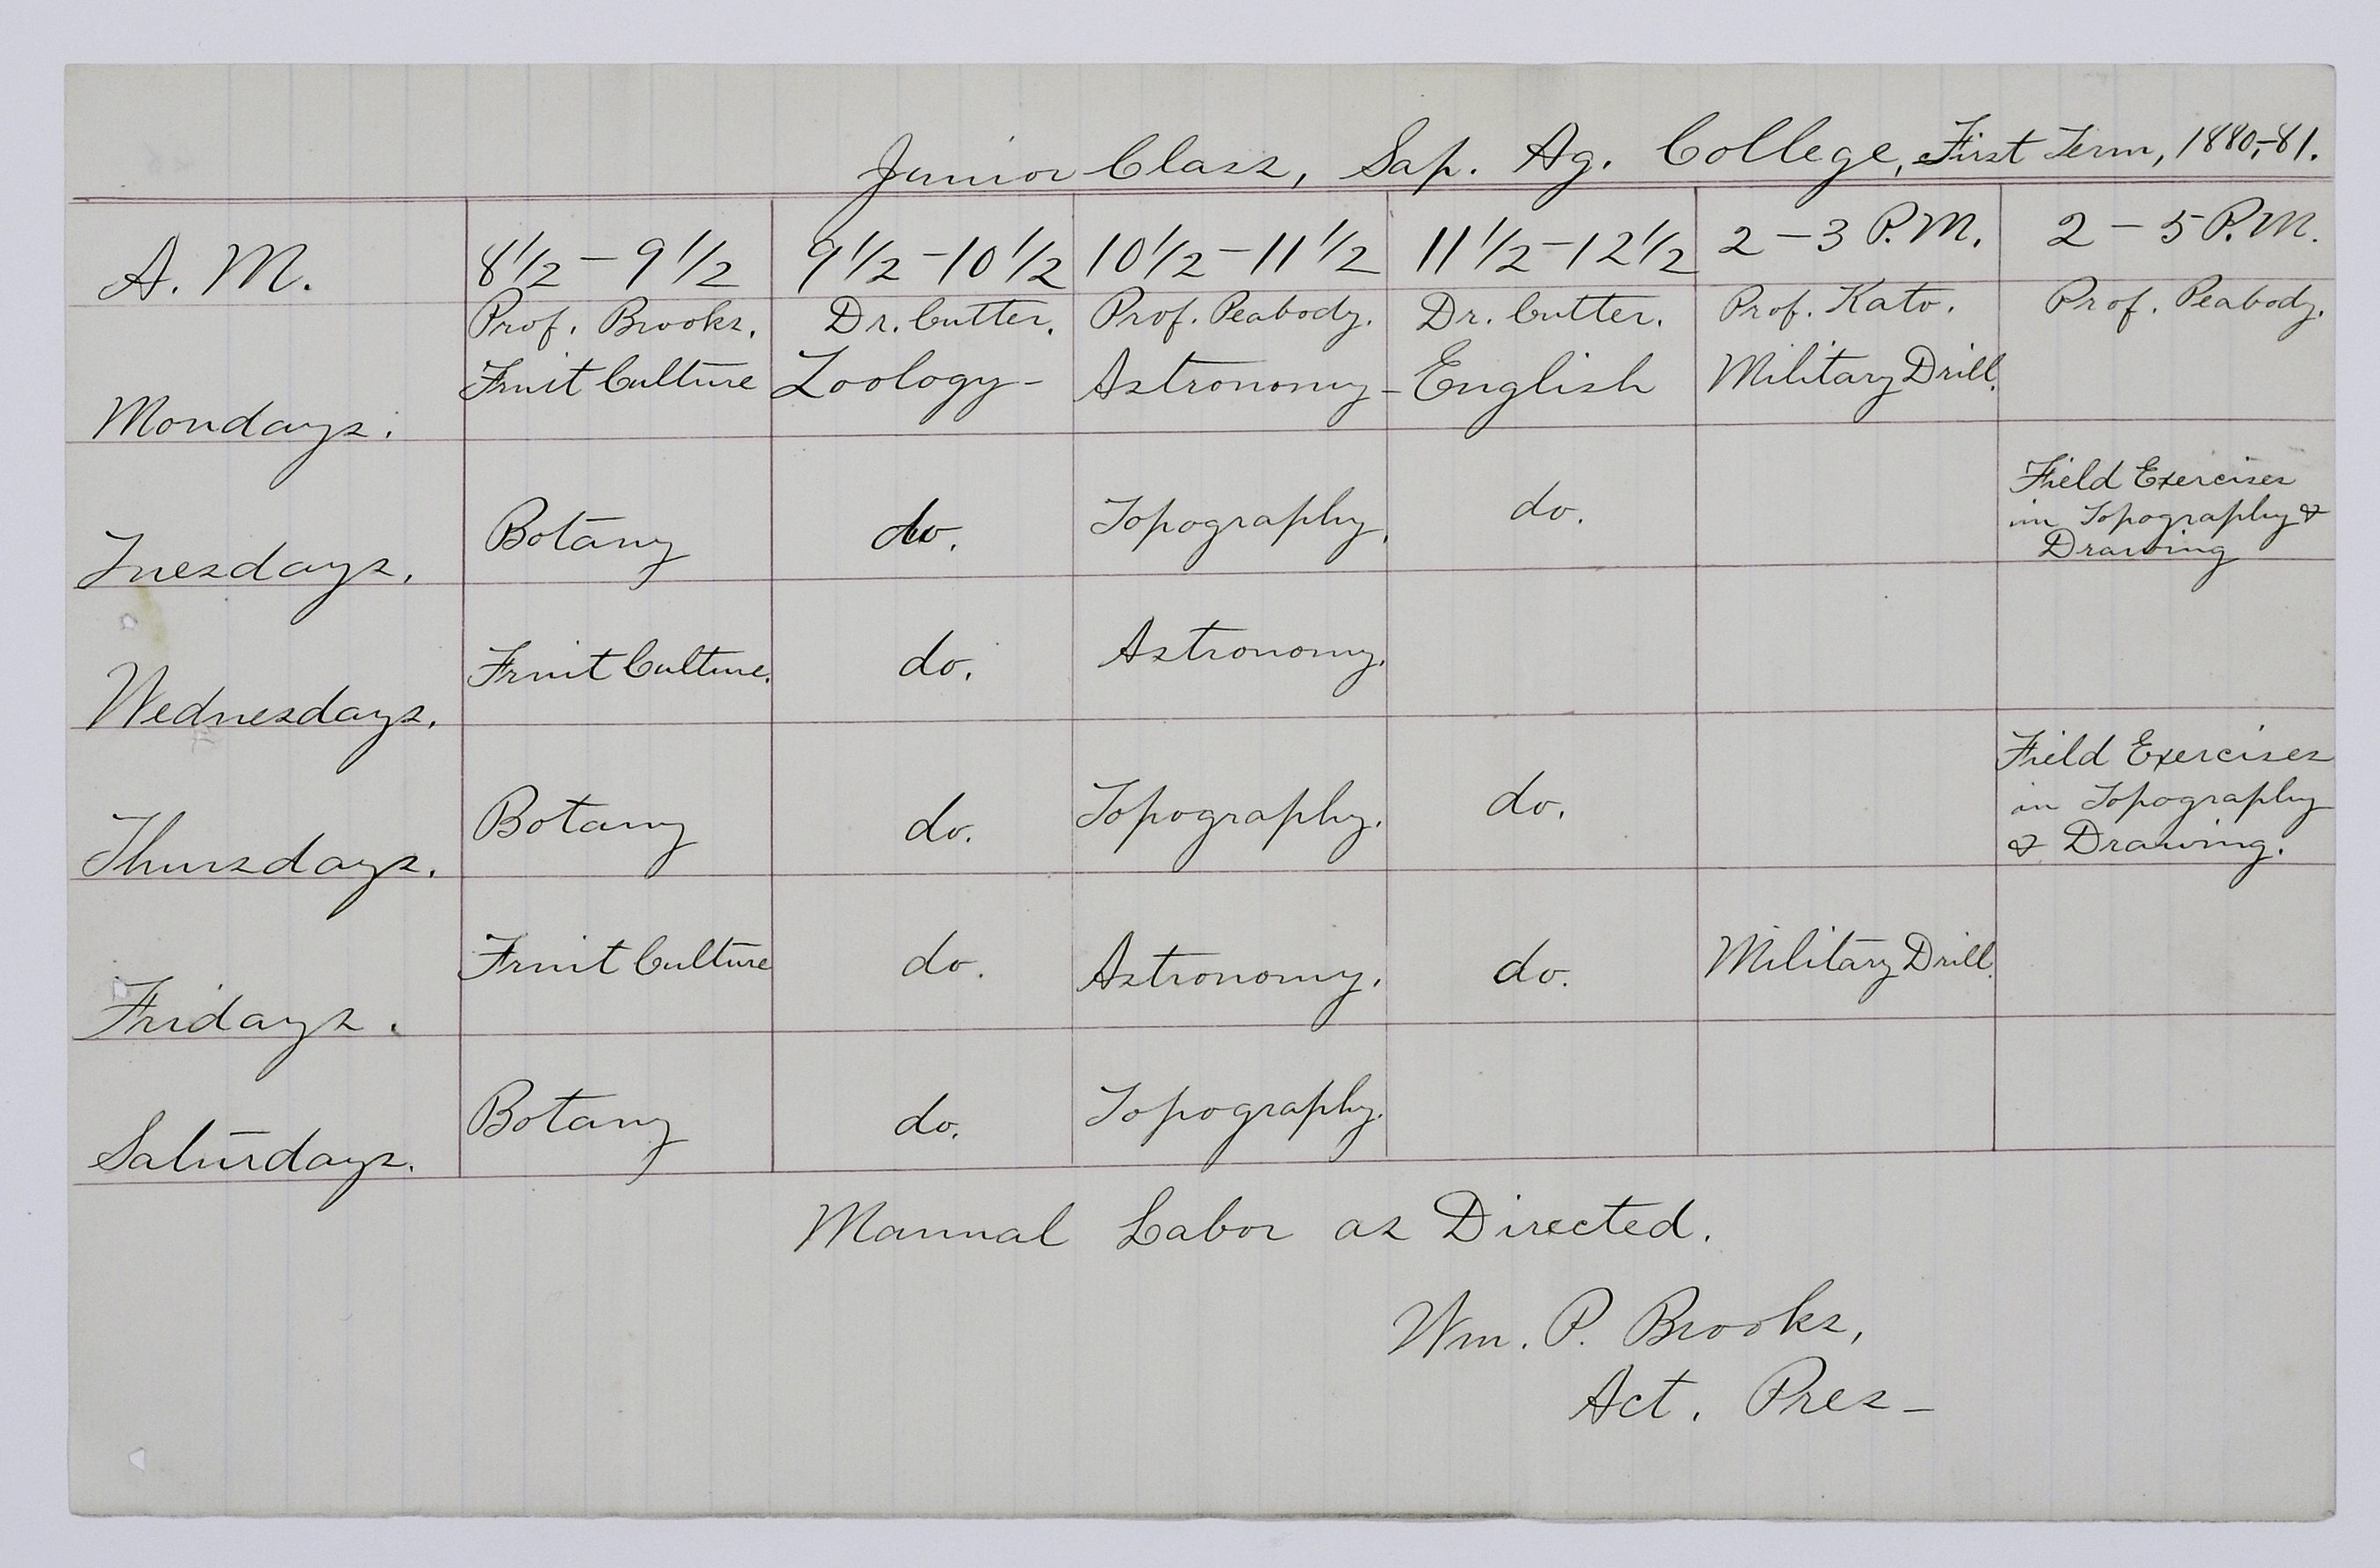 Junior Class, Sap. Ag. College, First Term, 1880,-81.
A. M. 8 1/2 - 9 1/2 9 1/2 - 10 1/2 10 1/2 - 11 1/2 11 1/2 - 12 1/2 2 - 3 P.M. 2 - 5 P.M.
Prof. Brooks. Dr. Cutter. Prof. Peabody. Dr. Cutter. Prof. Kato. Prof. Peabody.
Mondays. Fruit Culture Zoology - Astronomy - English Military Drill.
Tuesdays. Botany do. Topography. do. Field Exercises
in Topography &
Drawing
Wednesdays. Fruit Culture. do. Astronomy.
Thursdays. Botany do. Topography. do. Field Exercises
in Topography
& Drawing.
Fridays. Fruit Culture do. Astronomy. do. Military Drill.
Saturdays. Botany do. Topography.
Manual Labor as Directed.
Wm. P. Brooks,
Act. Pres -